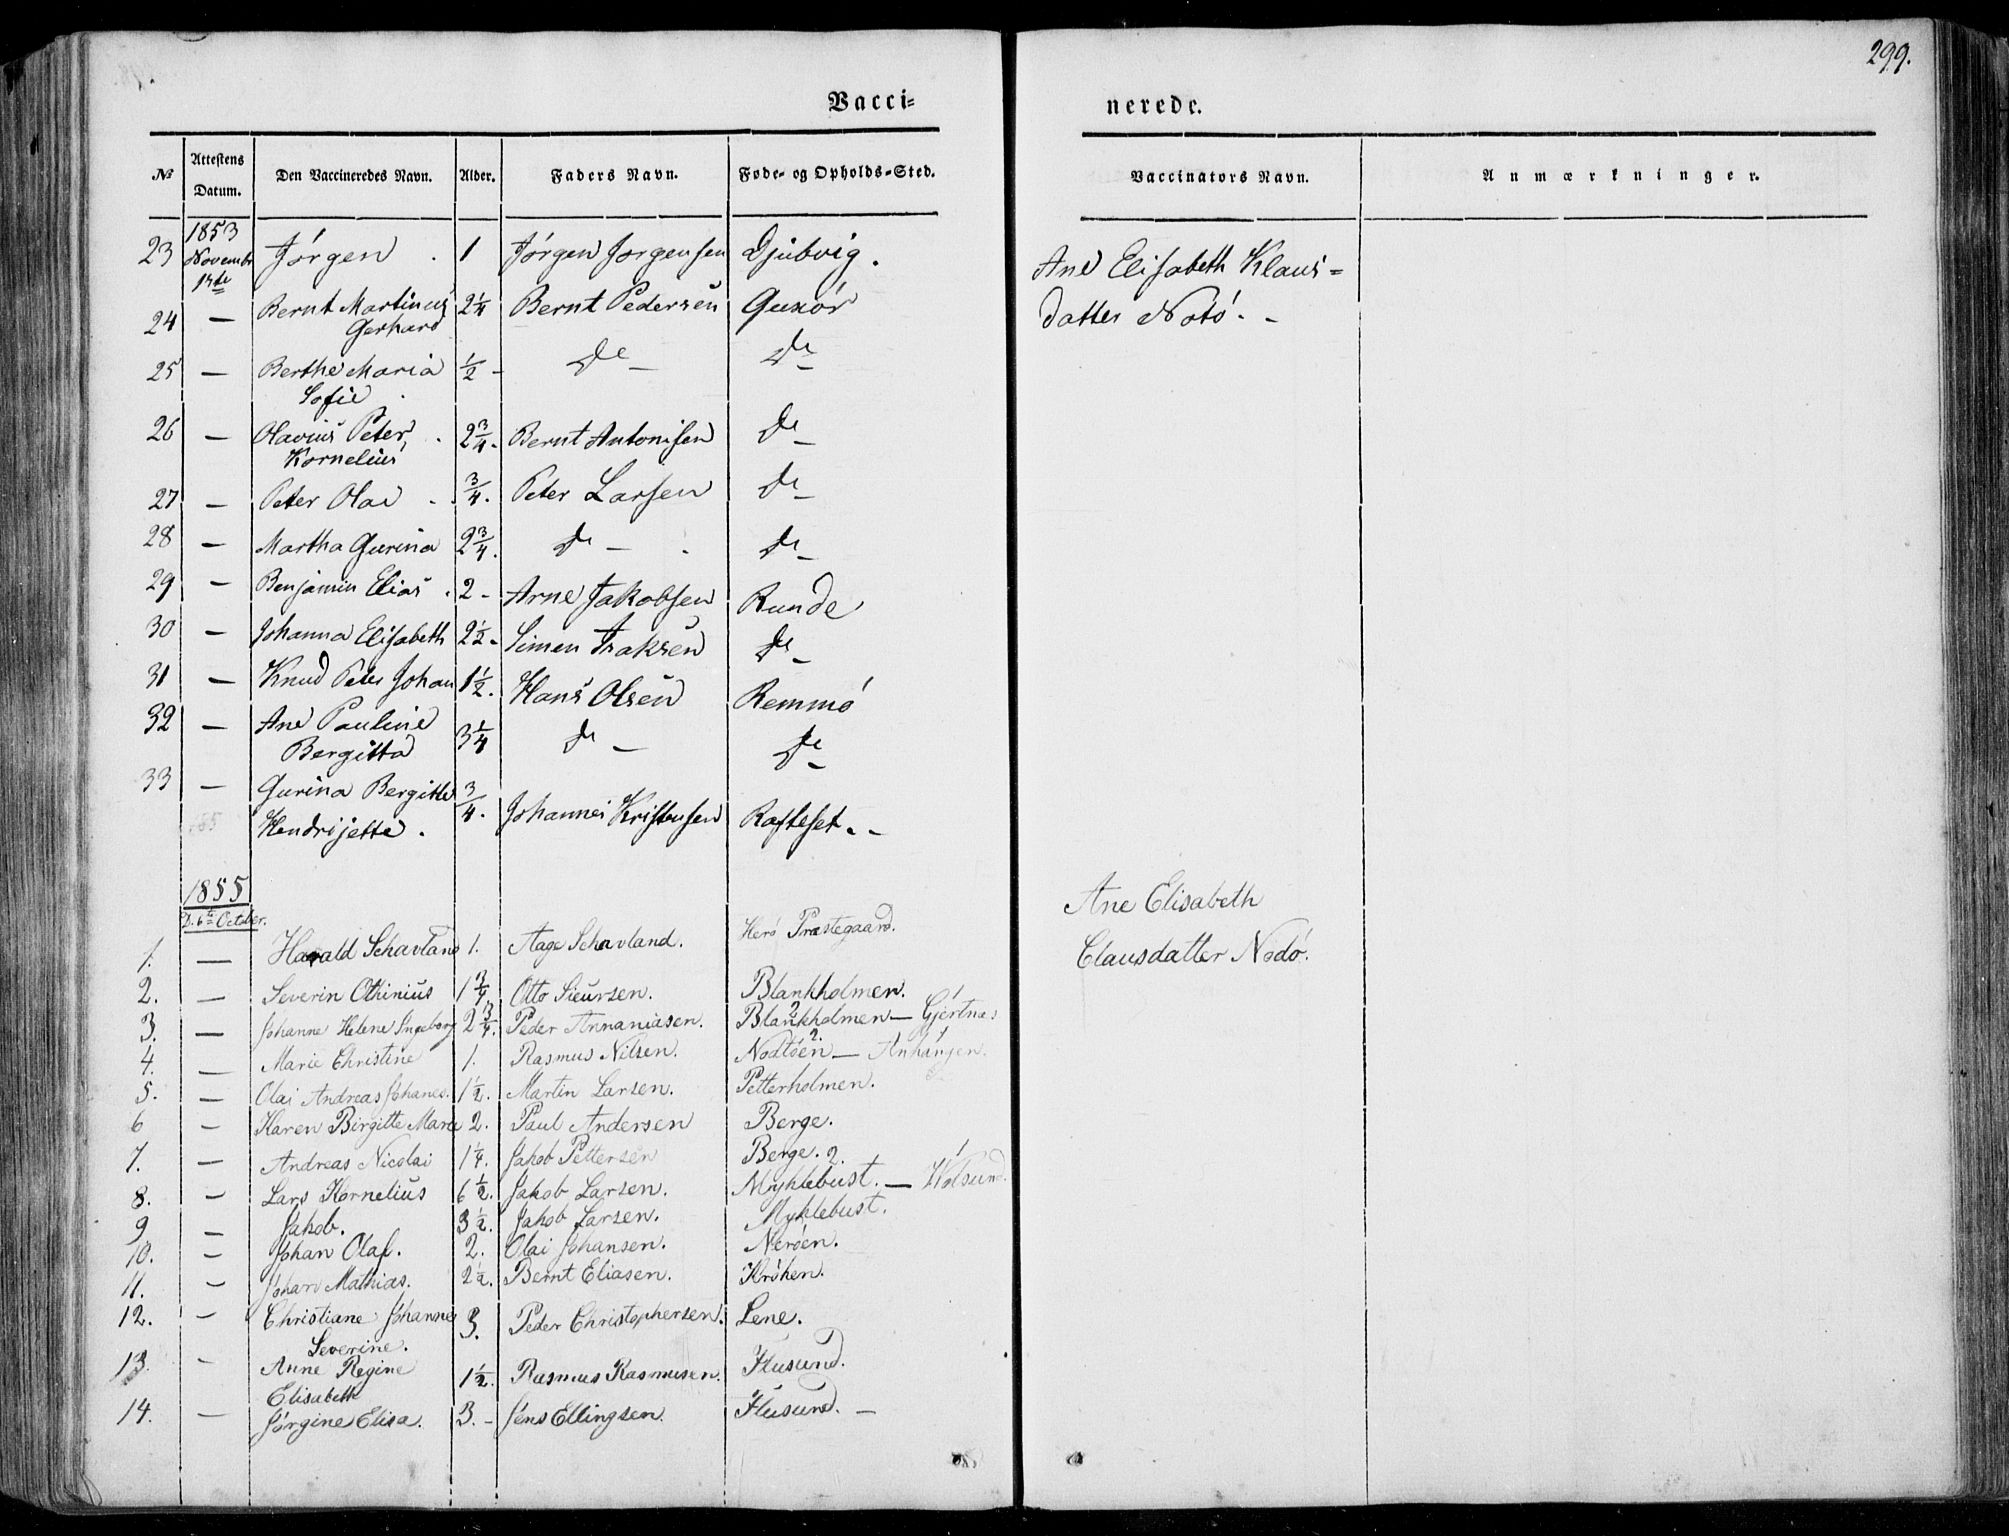 299.
Vacci=
nerede.
No
Attestens Datum.
Den Vaccineredes Navn.
Alder.
Faders Navn.
Føde- og Opholds=Sted.
Vaccinators Navn.
Anmærkninger.
1853
23 Novembr Jörgen . 1 Jörgen Jorgensen Djubvig. Ane Elisabeth Klaus=
24 — Bernt Martinus 2 1/4 Bernt Pedersen Gurör datter Notö. -
Gerhard
25 — Berthe Maria 1/2 - De — De —
Sofie
26 — Olavius Peter, 2 3/4. Bernt Antonisen De —
Kornelius
27 — Peter Olai 3/4. Peter Larsen De —
28 — Martha Gurina 2 3/4. De — De —
29 — Benjamin Elias . 2 - Arne Jakobsen Runde
30 — Johanna Elisabeth 2 1/2 - Simen Isaksen De —
31 — Knud Peter Johan 1 1/2. Hans Olsen Remmö
32 — Ane Pauline 3 1/4 De — De —
Bergitta
33 — Gurina Bergitte 3/4. Johannes Kristensen Rafteset. -
Hendrijette .
1855
D. 6te October. Ane Elisabeth
1. — Harald Schavland 1. Aage Schavland. Herö Præstegaard. Clausdatter Nodö.
2. — Severin Othinius 1 3/4 Otto Sieursen. Blankholmen.
3. — Johanne Helene Ingeborg 2 3/4. Peder Annaniasen. Blankholmen — Gjertnæs
4. — Marie Christine 1. Rasmus Nilsen. Nodtöen —
5. — Olai Andreas Johanes. 1 1/2. Martin Larsen. Petterholmen.
6 — Karen Birgitte Marie 2. Paul Andersen Berge.
7. — Andreas Nicolai 1 1/4. Jakob Pettersen Berge.
8. — Lars Kornelius 6 1/2. Jakob Larsen. Myklebust. —
9 — Jakob. 3 1/2. Jakob Larsen. Myklebust.
10. — Johan Olaf. 2. Olai Johansen. Neröen.
11. — Johan Mathias. 2 1/2. Bernt Eliasen. Kröken.
12. — Christiane Johanne 3. Peder Christophersen. Lene.
Severine.
13. — Anne Regine 1 1/2. Rasmus Rasmusen. Flusund.
Elisabeth
14. — Jörgine Elisa. 3. - Jens Ellingsen. Flusund. —